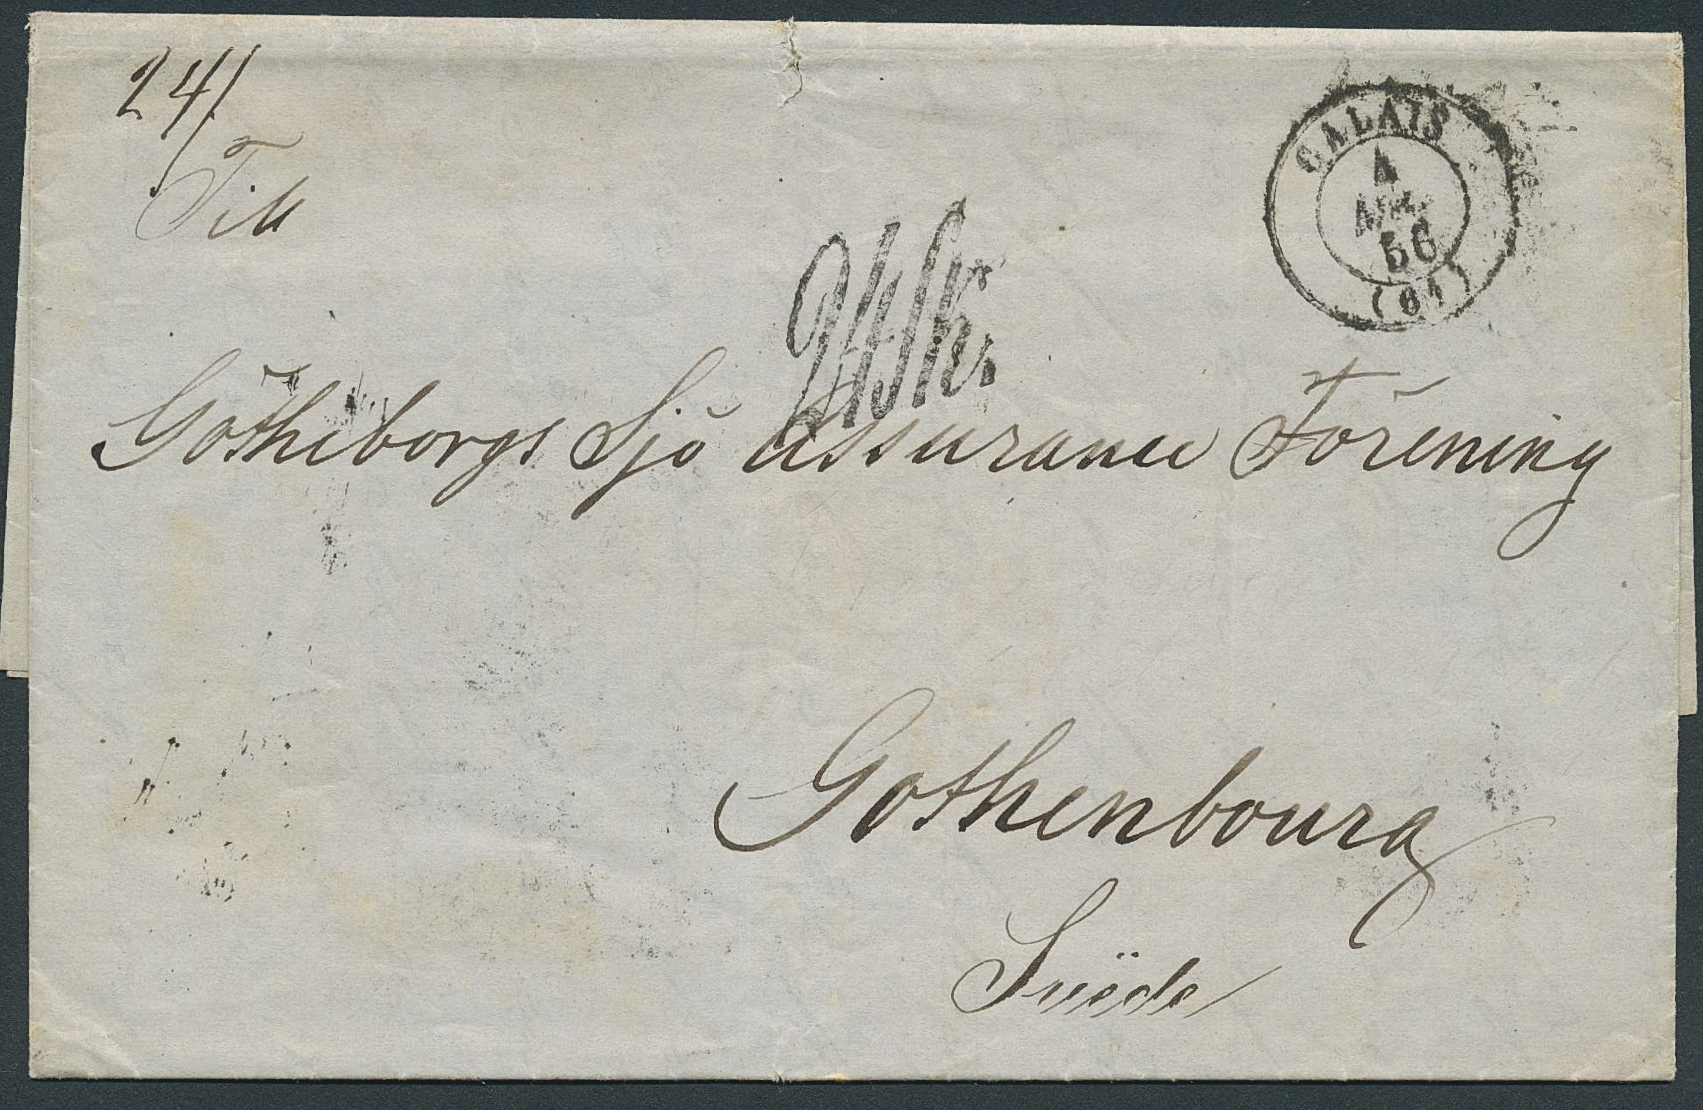 24/
Till
CALAIS
4
AVR.
56
(61)
24 sk.
Götheborgs Sjö Assurance Förening
Gothenbourg
Suëde